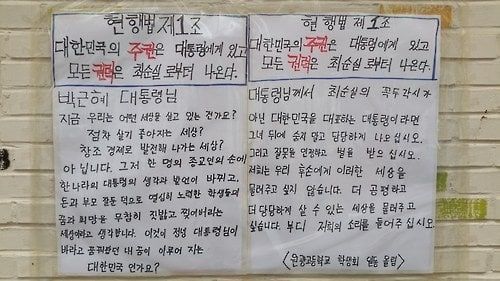 현행법 제1조
대한민국의 주권은 대통령에게 있고
모든 권력은 최순실 로부터 나온다.
박근혜 대통령님
지금 우리는 어떤 세상을 살고 있는 건가요?
점차 살기 좋아지는 세상?
창조 경제로 발전해 나가는 세상?
아닙니다. 그저 한 명의 종교인의 손에
한 나라의 대통령의 생각과 발언이 바뀌고,
돈과 부모 잘둔 덕으로 열심히 노력한 학생들의
꿈과 희망을 무참히 짓밟고 찢어버리는
세상이라고 생각합니다. 이것이 정녕 대통령님이
바라고 꿈꿔왔던 내 꿈이 이루어 지는
대한민국 인가요?
현행법 제1조
대한민국의 주권은 대통령에게 있고
모든 권력은 최순실 로부터 나온다.
대통령님께서 최순실의 꼭두각시가
아닌 대한민국을 대표하는 대통령이라면
그녀 뒤에 숨지 말고 당당하게 나오십시오.
그리고 잘못을 인정하고 벌을 받으십시오.
저희는 우리 후손에게 이러한 세상을
물려주고 싶지 않습니다. 더 공평하고
더 당당하게 살 수 있는 세상을 물려주고
싶습니다. 부디 저희의 소리를 들어주십시오.
고등학교 학생회 일동 올림